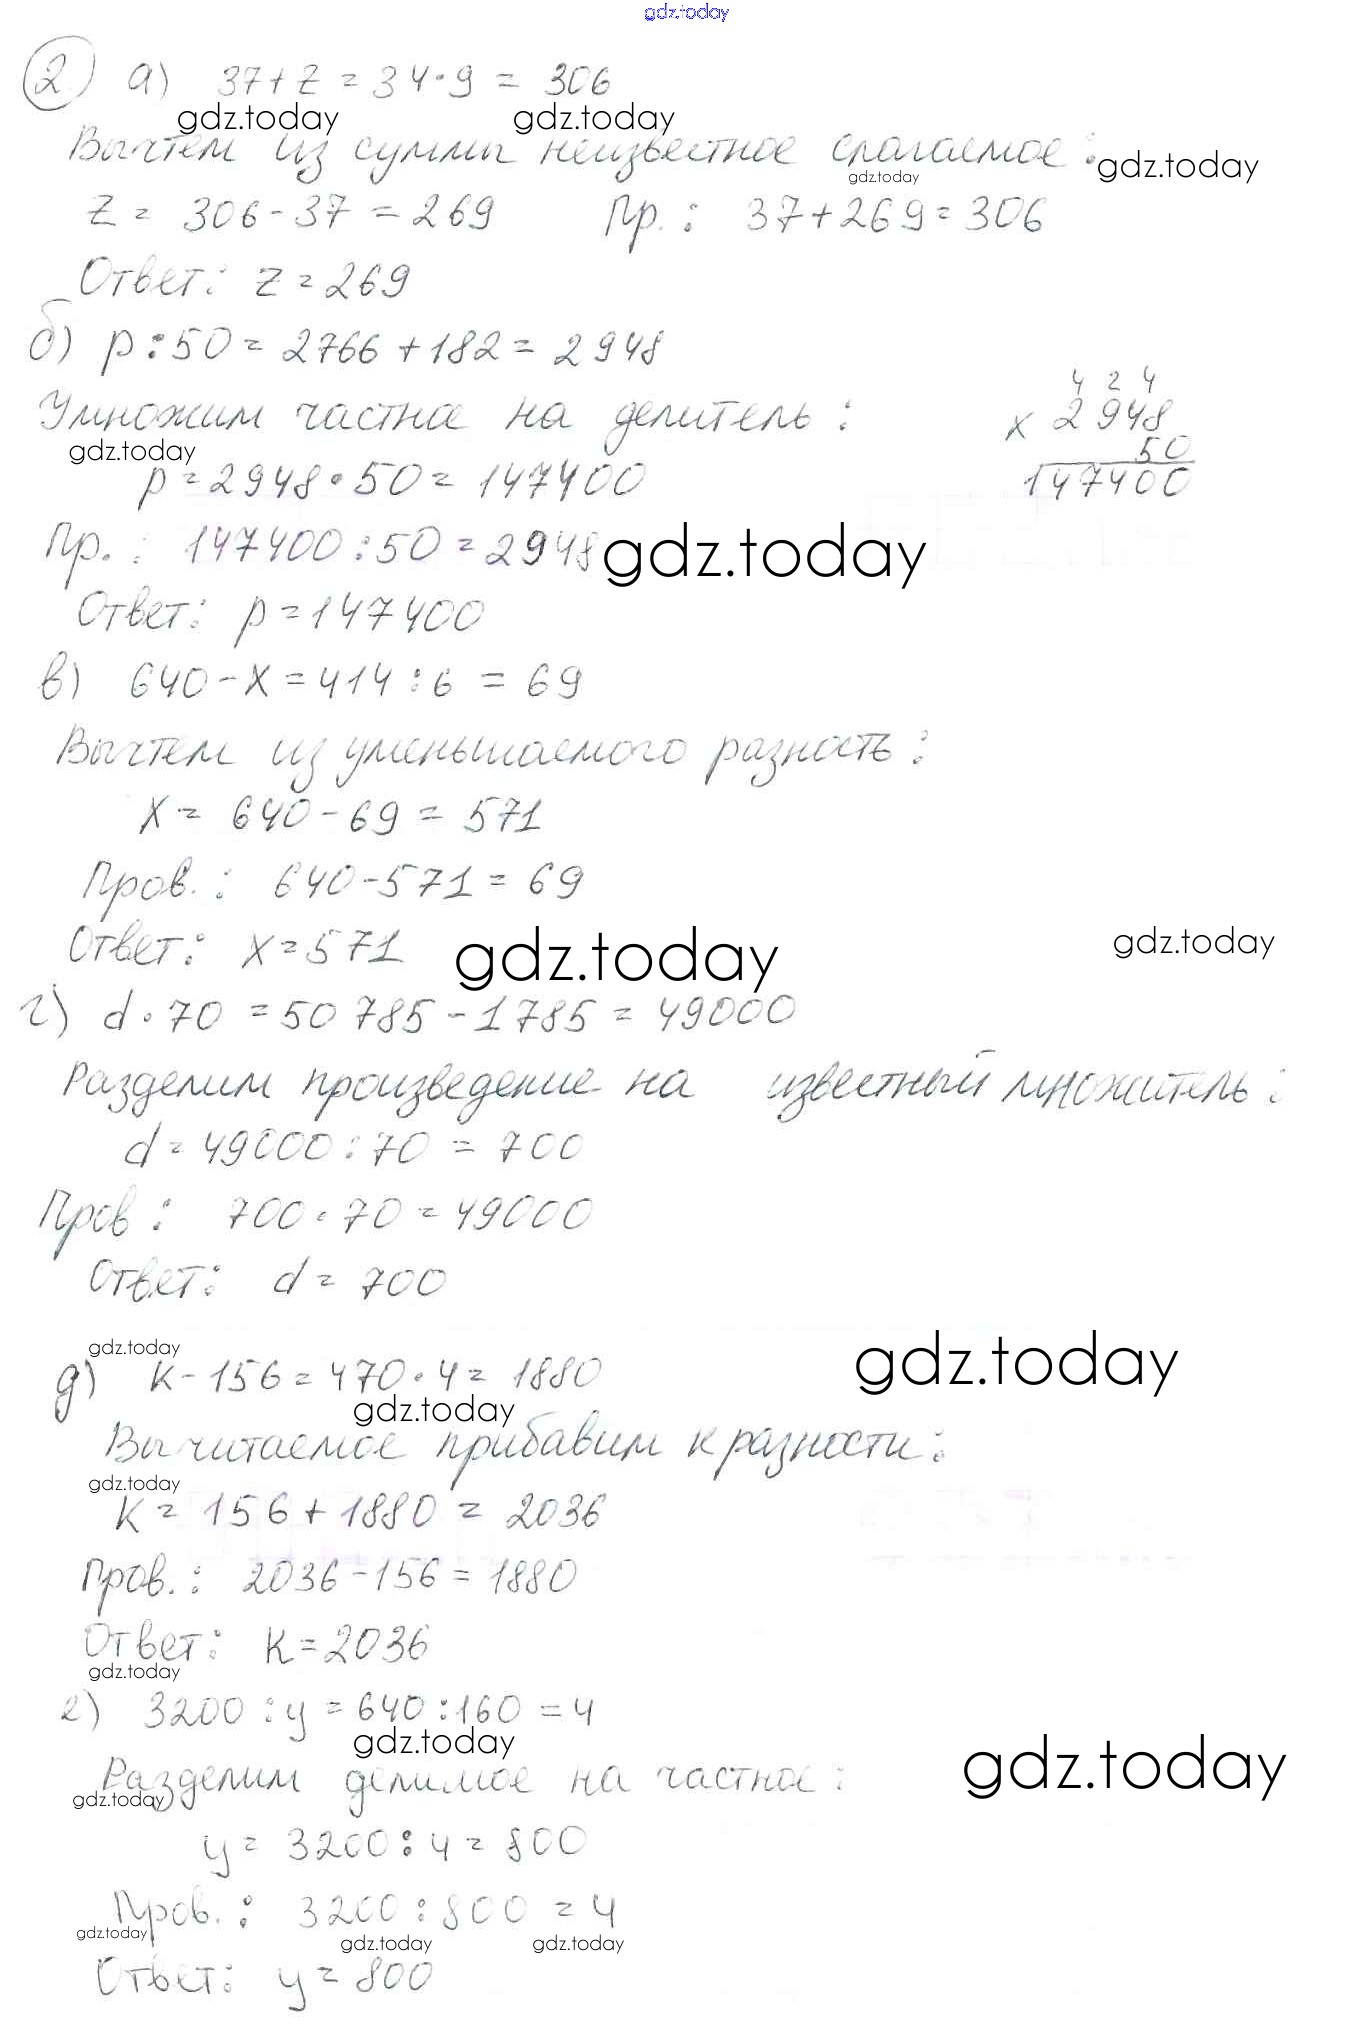 gdz.today
2 а) 37+z=34·9 = 306
gdz.today gdz.today
Вычтем из суммы неизвестное слагаемое: gdz.today
gdz.today
z = 306-37 = 269 Пр.: 37+269=306
Ответ: z=269
б) p:50=2766+182=2948
4 2 4
Умножим частное на делитель: × 2948
gdz.today 50
p=2948·50=147400 147400
Пр.: 147400:50=2948 gdz.today
Ответ: p=147400
в) 640-x=414:6 = 69
Вычтем из уменьшаемого разность:
x= 640-69 = 571
Пров.: 640-571=69
Ответ: x=571 gdz.today gdz.today
г) d·70 =50 785-1785=49000
Разделим произведение на известный множитель:
d=49000:70 = 700
Пров: 700·70=49000
Ответ: d= 700
gdz.today gdz.today
д) k-156=470·4= 1880
gdz.today
Вычитаемое прибавим к разности:
gdz.today
k= 156+1880 = 2036
Пров.: 2036-156=1880
Ответ: k=2036
gdz.today
е) 3200:y=640:160=4
gdz.today gdz.today
Разделим делимое на частное:
gdz.today
y= 3200:4=800
Пров.: 3200:800=4
gdz.today gdz.today gdz.today
Ответ: y=800